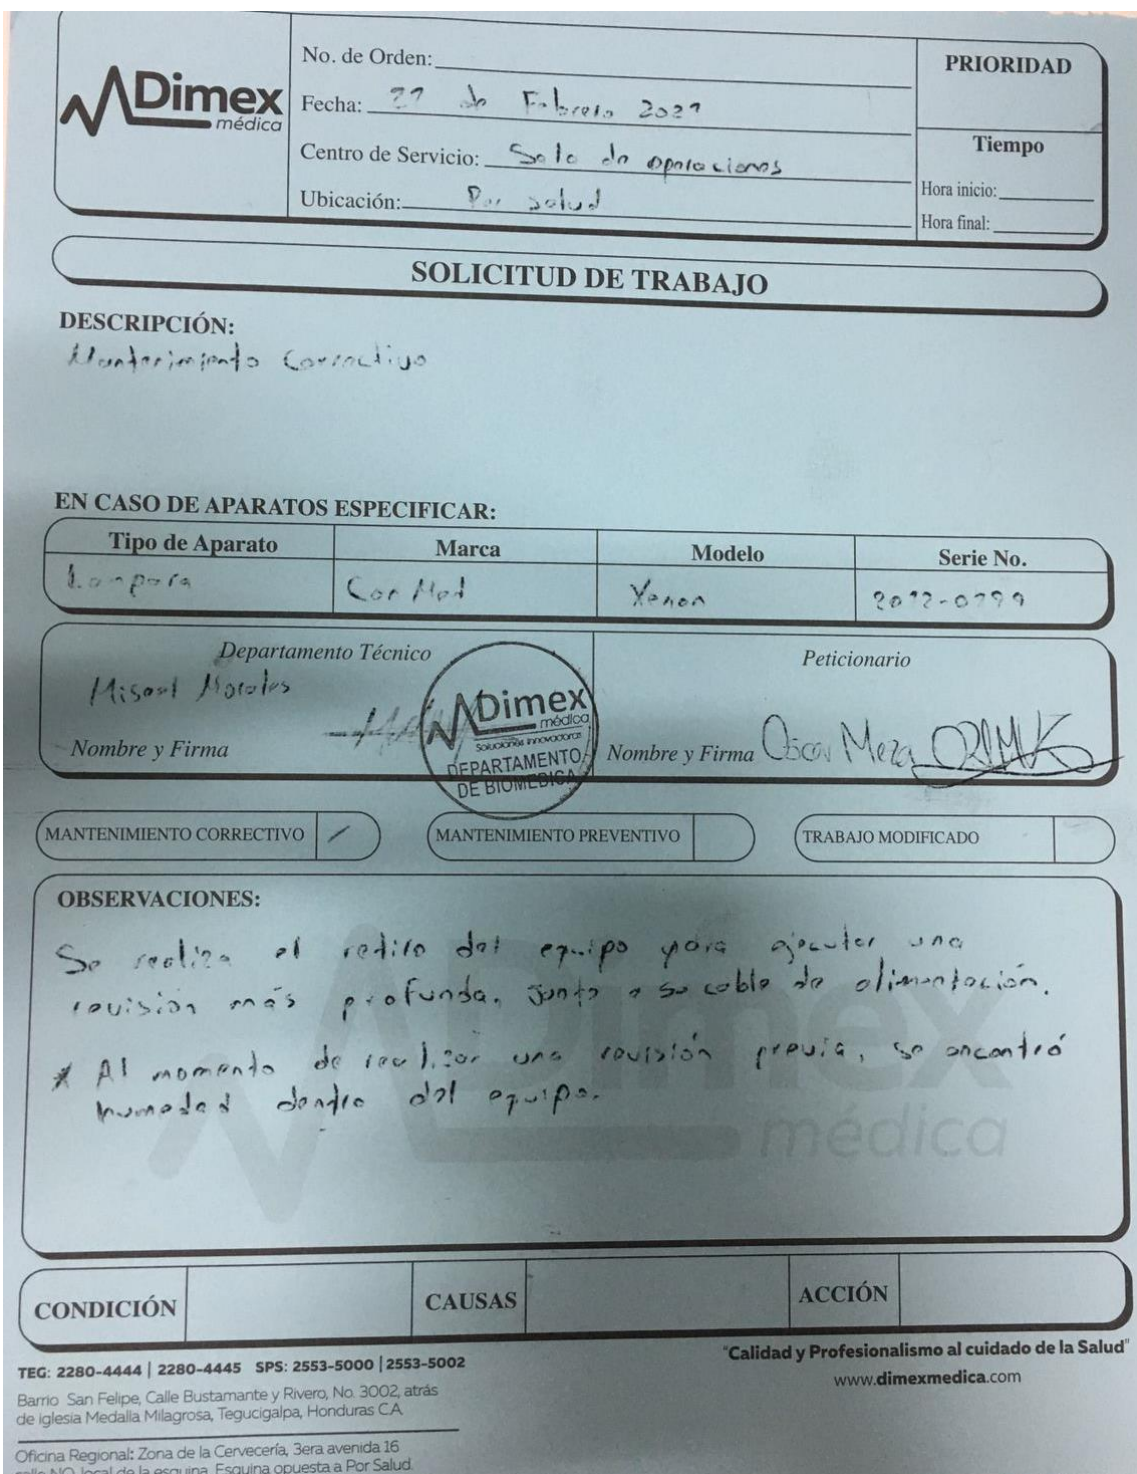 Dimex
médica
No. de Orden:
Fecha: de Febrero
Centro de Servicio: Sala de operaciones
Ubicación: Por salud
PRIORIDAD
Tiempo
Hora inicio:
Hora final:
SOLICITUD DE TRABAJO
DESCRIPCIÓN:
Mantenimiento Correctivo
EN CASO DE APARATOS ESPECIFICAR:
Tipo de Aparato Marca Modelo Serie No.
Lampara ConMed Xenon
Departamento Técnico
Misael Morales
Nombre y Firma
Dimex
médica
Soluciones innovadoras
DEPARTAMENTO
DE BIOMEDICA
Peticionario
Nombre y Firma Oscar Meza
MANTENIMIENTO CORRECTIVO
MANTENIMIENTO PREVENTIVO
TRABAJO MODIFICADO
OBSERVACIONES:
Se realiza el retiro del equipo para ejecutar una
revisión más profunda, junto a su cable de alimentación.
* Al momento de realizar una revisión previa, se encontró
humedad dentro del equipo.
Dimex
médica
CONDICIÓN CAUSAS ACCIÓN
TEG: 2280-4444 | 2280-4445 SPS: 2553-5000 | 2553-5002
Barrio San Felipe, Calle Bustamante y Rivero, No. 3002, atrás
de iglesia Medalla Milagrosa, Tegucigalpa, Honduras C.A.
Oficina Regional: Zona de la Cervecería, 3era avenida 16
calle NO, local de la esquina. Esquina opuesta a Por Salud.
"Calidad y Profesionalismo al cuidado de la Salud"
www.dimexmedica.com